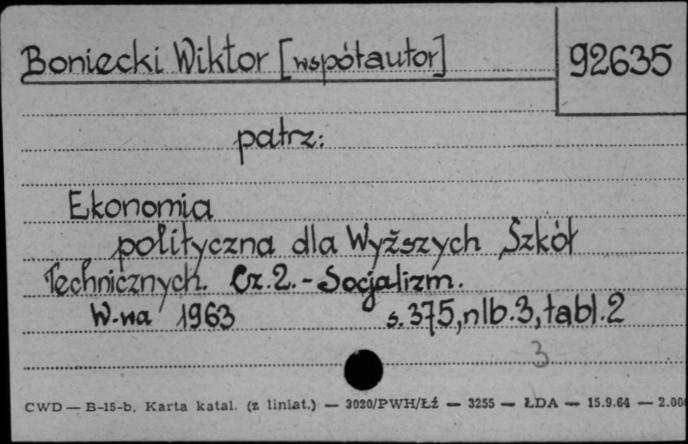 Boniecki Wiktor [współautor] 92635
patrz:
Ekonomia
polityczna dla Wyższych Szkół
Technicznych. Cz.2.-Socjalizm.
W-wa 1963 s.375,nlb.3,tabl.2
3
CWD — B-15-b, Karta katal. (z liniat.) — 3020/PWH/Łź — 3255 — ŁDA — 15.9.64 — 2.00